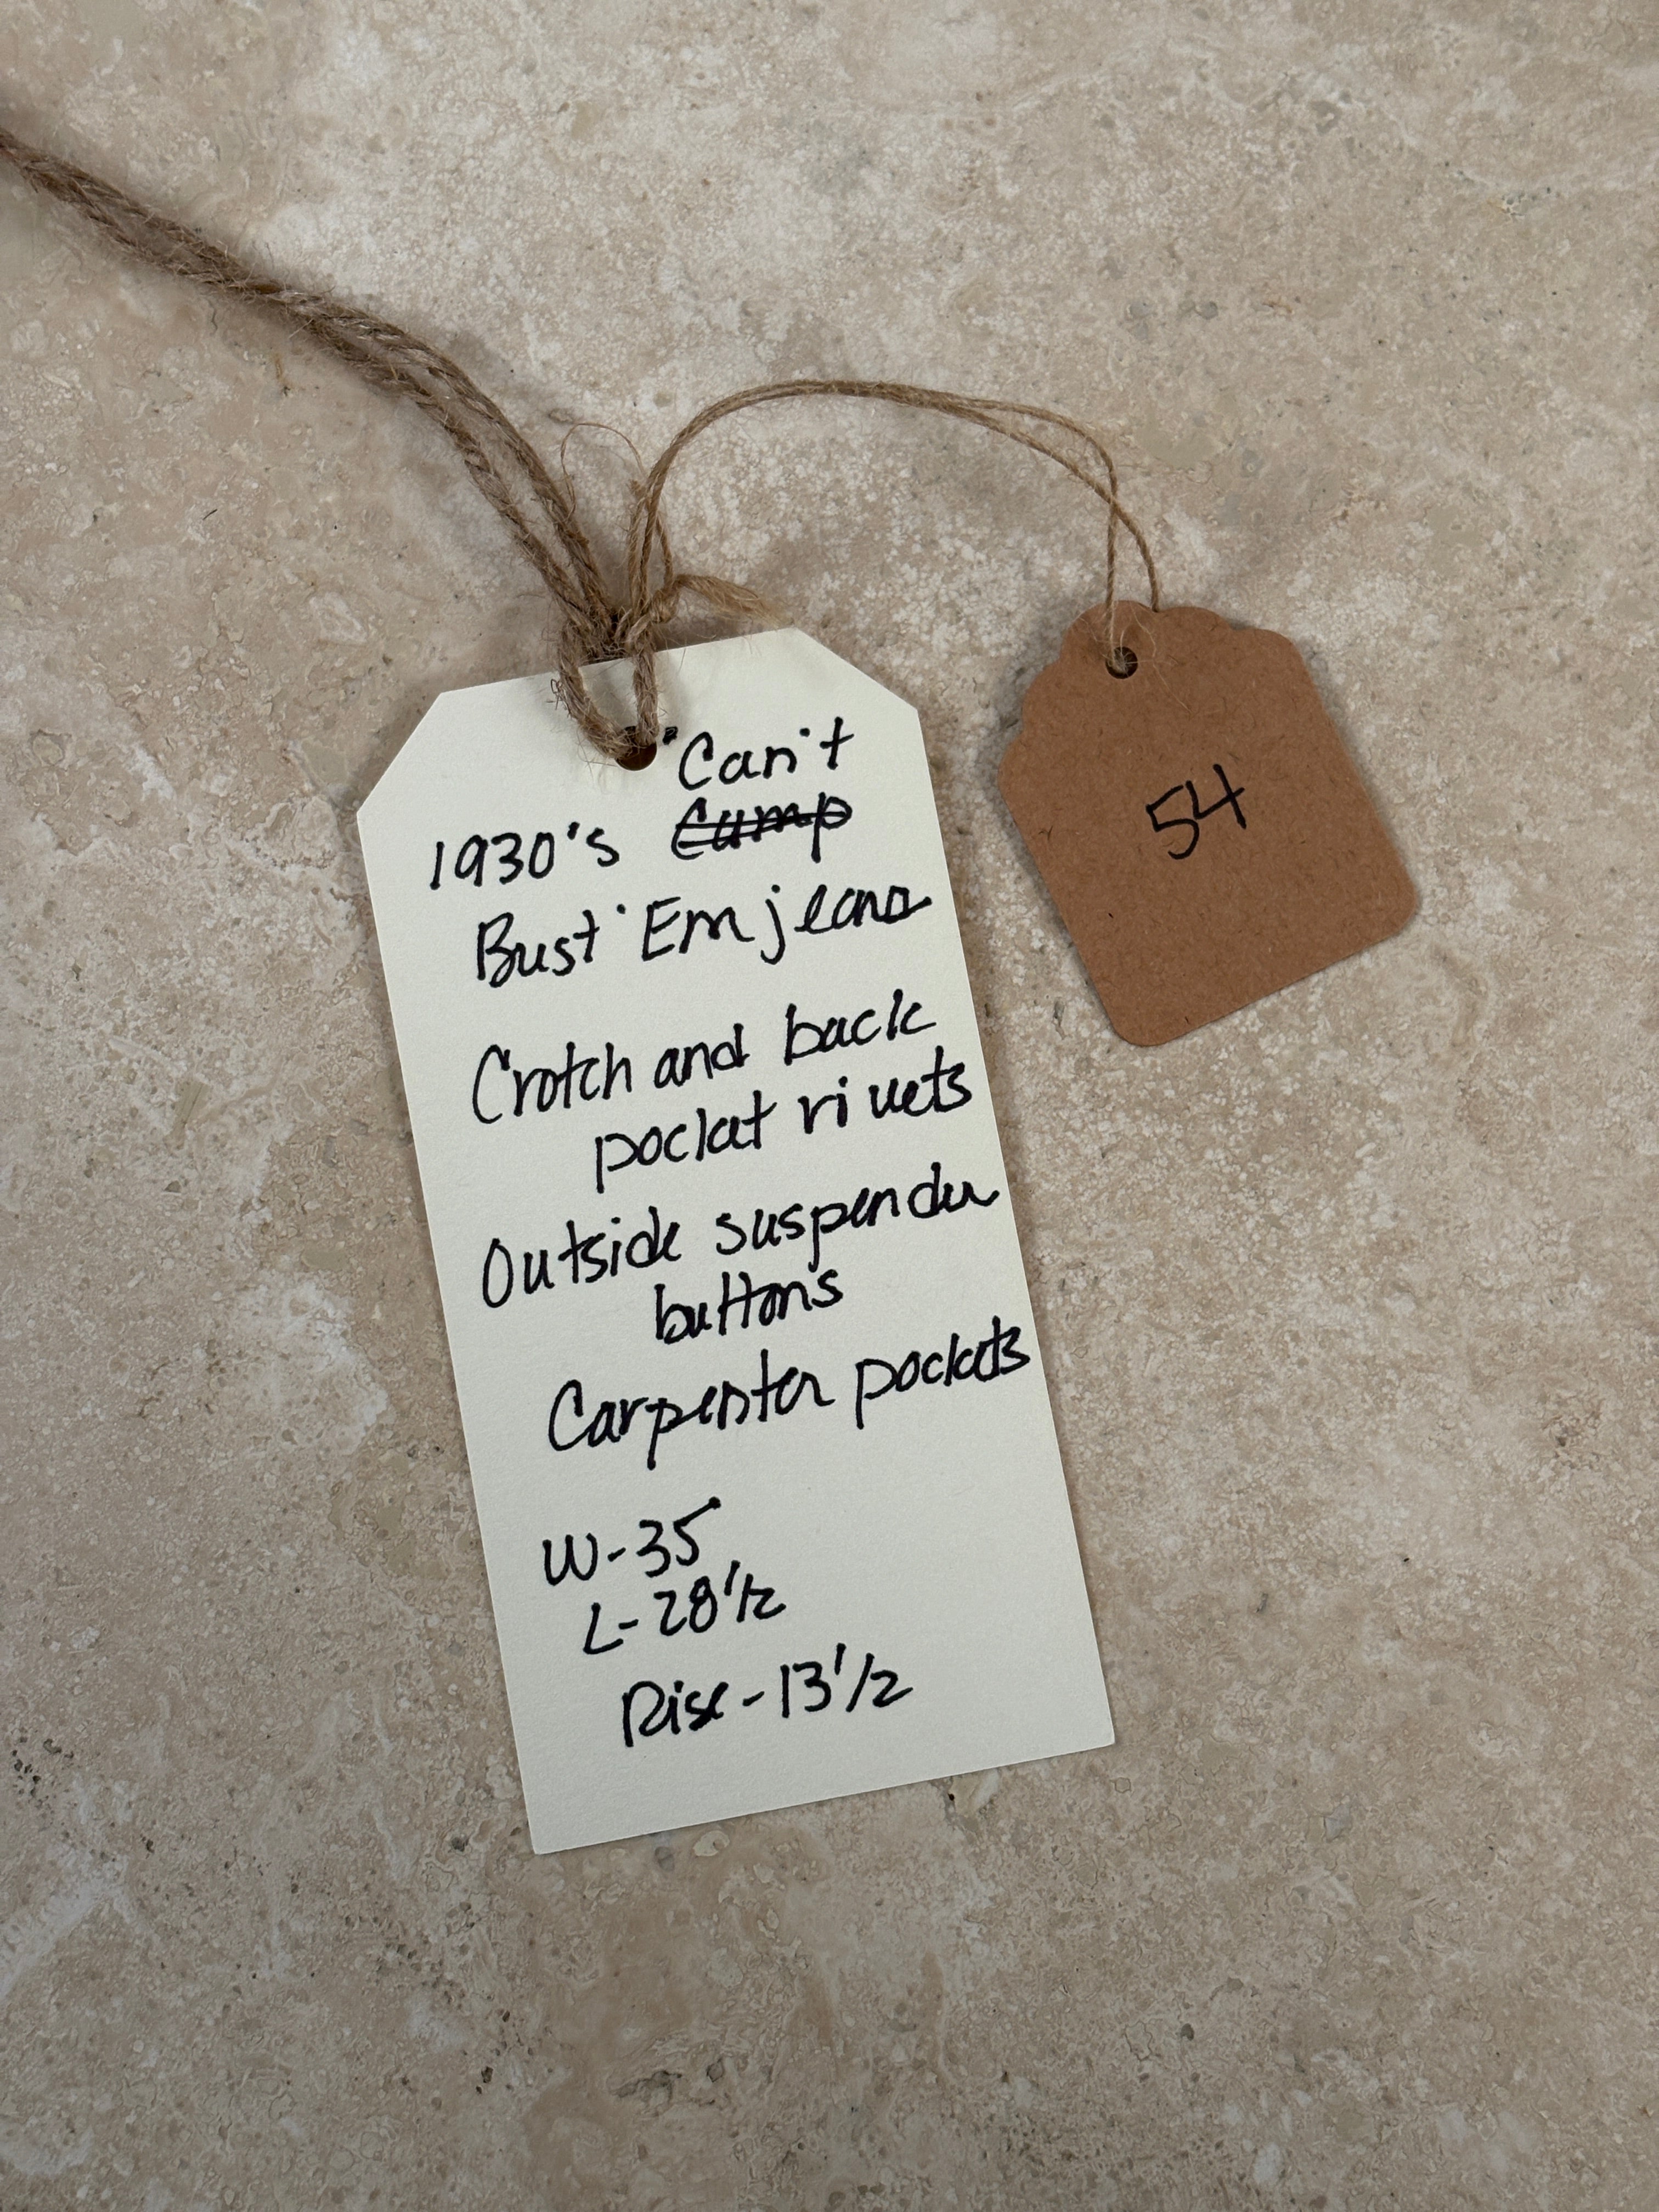 "Can't
1930's Cump
Bust 'Em jeans
Crotch and back
pocket rivets
Outside suspender
buttons
Carpenter pockets
W-35
L-28 1/2
Rise-13 1/2
54